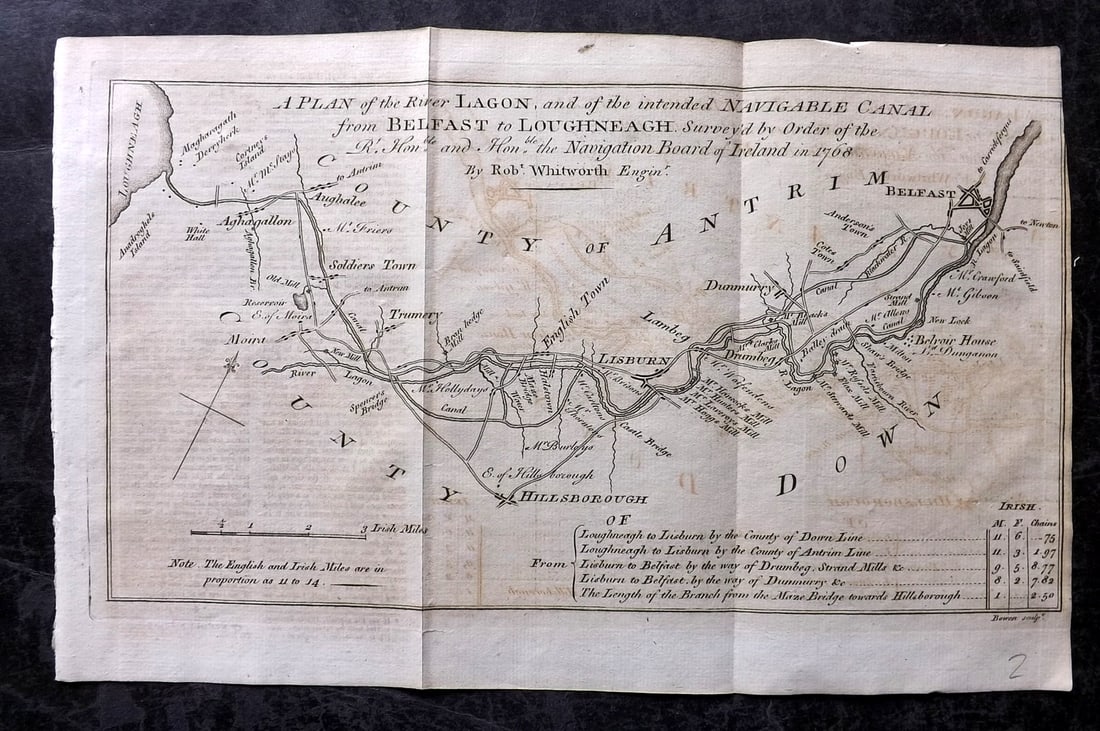 A PLAN of the River LAGON, and of the intended NAVIGABLE CANAL
from BELFAST to LOUGHNEAGH. Survey'd by Order of the
Rt. Honble and Honble the Navigation Board of Ireland in 1768
By Robt. Whitworth Enginr.
LOUGHNEAGH
Magharagath
Derryherk
Cortneys
Island
Mr. McStays
to Antrim
Anadroghels
Island
White
Hall
Aghagallon
Aghagallon Br.
Aughalee
Mr. Friers
Soldiers Town
Old Mill
to Antrim
Reservoir
E. of Moira
Trumery
Moira
New Mill
Canal
River
Lagon
Spencers
Bridge
COUNTY OF ANTRIM
English Town
Lambeg
LISBURN
Mr. Hollydays
Canal
Maze
Bridge
Moor
Halstown
Mr. Burleys
Castle Bridge
E. of Hillsborough
HILLSBOROUGH
Dunmurry
Drumbeg
Mr. Wolfendens
Mr. Hancocks Mill
Hunters Mill
Mr. Lawrays Mill
Hoggs Mill
R. Lagon
Mr. Stewards Mill
Flax Mill
Shaws Bridge
Milton
Canal
Mr. Allens
Strand
Mill
New Lock
Belvoir House
Ld. Dungannon
Mr. Gibson
Mr. Crawford
Blackwater R.
Canal
Coles
Town
Anderson's
Town
BELFAST
to Carrickfergus
to Newton
R. Lagon
COUNTY OF DOWN
1
2
3 Irish Miles
Note The English and Irish Miles are in
proportion as 11 to 14.
IRISH.
M. F. Chains
From
Loughneagh to Lisburn by the County of Down Line 11 6 -75
Loughneagh to Lisburn by the County of Antrim Line 11 3 1.97
Lisburn to Belfast by the way of Drumbeg, Strand Mills &c 9 5 8.77
Lisburn to Belfast, by the way of Dunmurry &c 8 2 7.82
The Length of the Branch from the Maze Bridge towards Hillsborough 1 2.50
Bowen sculpt.
2